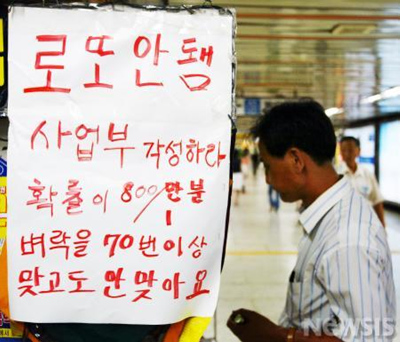 로또안됌
사업부 각성하라
확률이 800/만분
1
벼락을 70번이상
맞고도 안 맞아요
NEWSIS